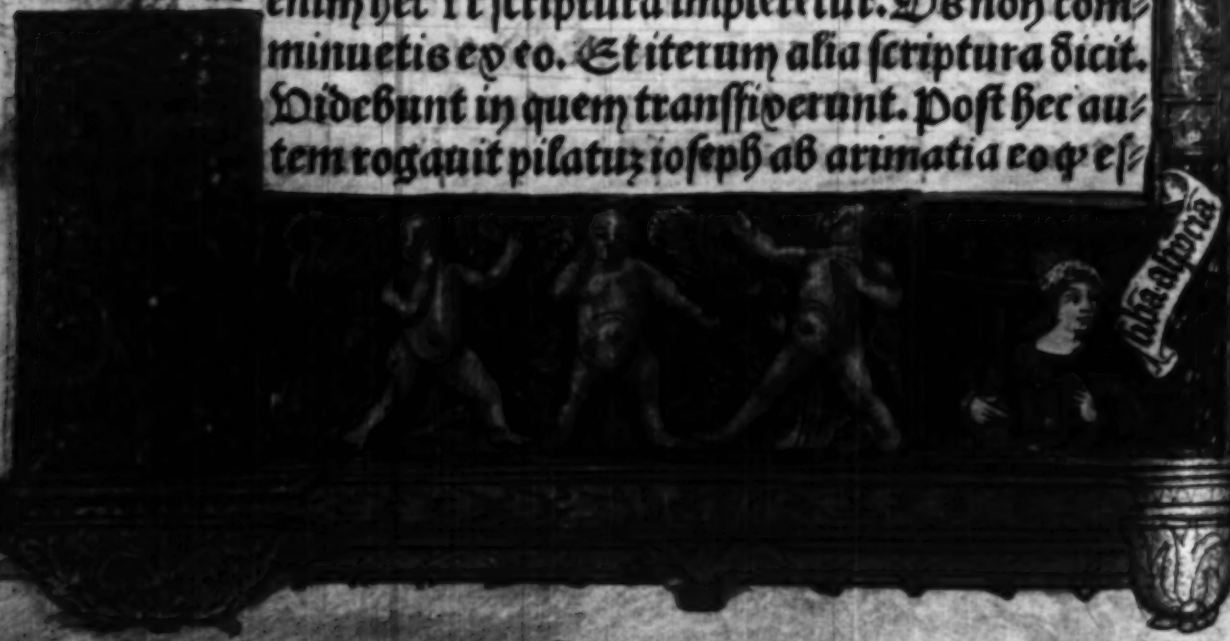 enim hec vt scriptura impleretur. Os non com-
minuetis ex eo. Et iterum alia scriptura dicit.
Videbunt in quem transfixerunt. Post hec au-
tem rogauit pilatuz ioseph ab arimatia eo qꝫ es-